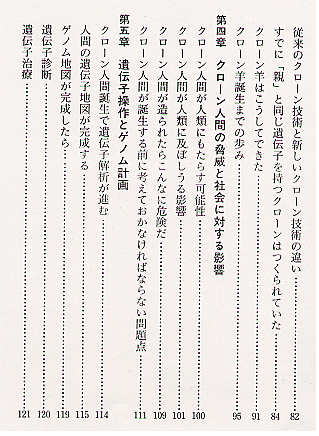 従来のクローン技術と新しいクローン技術の違い 82
すでに「親」と同じ遺伝子を持つクローンはつくられていた 84
クローン羊はこうしてできた 91
クローン羊誕生までの歩み 95
第四章 クローン人間の脅威と社会に対する影響
クローン人間が人類にもたらす可能性 100
クローン人間が人類に及ぼしうる影響 101
クローン人間が造られたらこんなに危険だ 109
クローン人間が誕生する前に考えておかなければならない問題点 111
第五章 遺伝子操作とゲノム計画
クローン人間誕生で遺伝子解析が進む 114
人間の遺伝子地図が完成する 115
ゲノム地図が完成したら 119
遺伝子診断 120
遺伝子治療 121